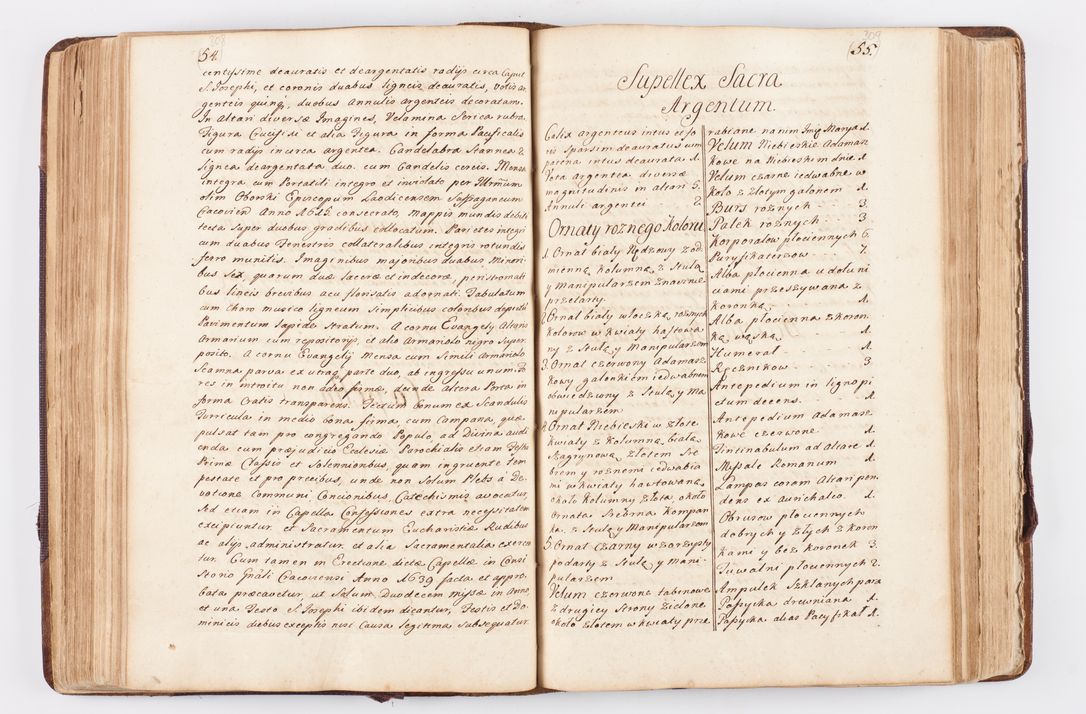 54.
centissime deauratis et deargentatis radijs circa Caput
S. Josephi, et coronis duabus ligneis deauratis, votis ar
genteis quinq, duobus Annulis argenteis decoratam.
In Altari diversæ Imagines, Velamina Serica rubra,
Figura Crucifixi et alia Figura in forma Pacificalis
cum radijs in curca argentea. Candelabra Stannea 2
lignea deargentata duo. cum Candelis cereis. Mensa
integra cum Portatili integro et inviolato per
olim Oborski Episcopum Laodicensem Suffraganeum
Cracovien Anno 1642 consecrato, mappis mundis debite
tecta super duobus gradibus collocatum. Parietes integri
cum duabus Fenestris collateralibus integris rotundis
ferro munitis. Imaginibus majoribus duabus Minori
bus Sex quarum duæ laceræ et indecoræ, peristromati
bus lineis brevibus acu florisatis adornati. Tabulatum
cum Choro musico ligneum Simplicibus coloribus depictū
Pavimentum lapide Stratum. A cornu Evangelij Altaris
Armarium cum repositorijs, et alio Armariolo nigro super
posito. A cornu Evangelij Mensa cum Simili Armariolo
Scamna parva ex utraq parte duo, ab ingressu unum. Fo
res in introitu non adeo firmæ, deinde altera Porta in
forma Cratis transparens. Tectum bonum ex Scandulis
Turricula in medio bona firma, cum Campana, quæ
pulsat tam pro congregando Populo, ad Divina audi
enda cum præjudicio Ecclesiæ Parochialis etiam Festis
Primæ Classis et Solennioribus, quam ingruente tem
pestate et pro precibus, unde non Solum Plebs à De
votione Communi, Concionibus, Catechismis avocatur,
sed etiam in Capella Confessiones extra necessitatem
excipiuntur, et Sacramentum Eucharistiæ Rudibus
ac alijs administratur, et alia Sacramentalia exercen
tur. Cum tamen in Erectione dictæ Capellæ in Consi
storio Gnāli Cracoviensi Anno 1639 facta et appro,
bata præcavetur, ut Solum Duodecem missæ in Anno,
et una Festo S. Josephi ibidem dicantur, Festis et Do
minicis diebus exceptis nisi Causa legitima subsequatur.
309
(55.)
Supellex Sacra
Argentum.
Calix argenteus intus et fo
ris Sparsim deauratus cum
patena intus deaurata. 1.
Vota Argentea diversæ
magnitudinis in altari 5.
Annuli argentei . . . 2.
Ornaty roznego Koloru
1. Ornat biały Rędzowy z od
mienną Kolumną, z Stułą
y Manipularzem znacznie
przetarty.
2. Ornat biały włoczką roznych
Kolorow w Kwiaty haftowa
ny z Stułą y Manipularzem
3. Ornat czerwony Adamasz
kowy galonkiem iedwabnem
obwiedziony z Stułą y Ma
nipularzem
4. Ornat Niebieski w złote
kwiaty z Kolumną białą
Szagrynową, Złotem Sre
brem y roznemi iedwabia
mi w kwiaty hawtowaną
około Kolumny Złota, około
Ornata Srebrna Kompan
ka. z Stułą y Manipularzem
5. Ornat Czarny wszorzysty
podarty z Stułą y Mani-
pularzem
Velum czerwone tabinowe
z drugiey strony Zielone
około złotem w kwiaty prze
rabiane na nim Imię Marya 1.
Velum Niebieskie Adamasz
kowe na Niebieskim dnie 1.
Velum czarne iedwabne w
koło z złotym galonem 1.
Burs roznych . . . 3.
Palek roznych . . . 3.
Korporałow płociennych 6.
Puryfikaterzow . . . 7.
Alba płocienna u dołu ni
ciami przeszywana z
koronką . . . 1.
Alba płocienna z koron
ką wąską . . . 1.
Humerał . . . 1.
Ręcznikow . . . 3.
Antepedium in ligno pi
ctum decens. . . . 1.
Antepedium Adamasz
kowe czerwone . 1.
Tintinabulum ad Altare 1.
Missale Romanum . 1.
Lampas coram Altari pen
dens ex aurichalco. 1.
Obrusow płociennych
dobrych y złych z koron
kami y bez koronek 3.
Tuwalni płociennych 2.
Ampułek Szklanych para
Passyika drewniana . 1.
Passyika alias Pacyfikał 1.